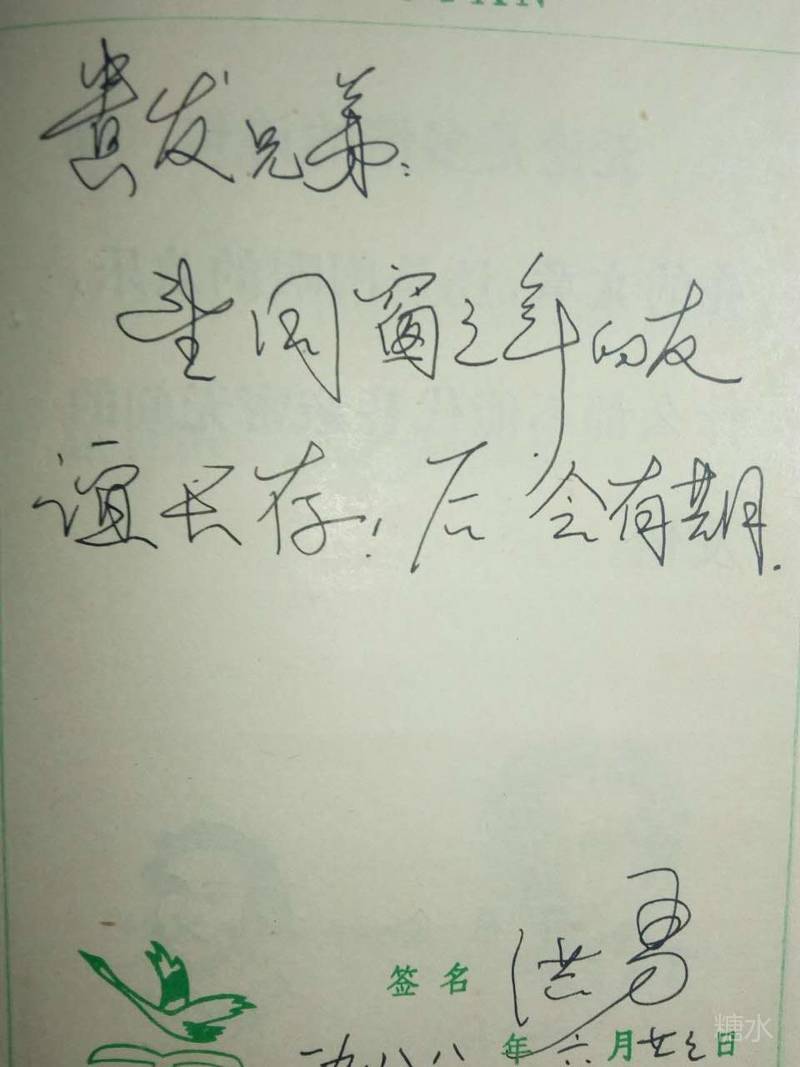 贵发兄弟:
望同窗三年的友
谊长存!后会有期.
签名 洪勇
一九八八年六月廿三日
糖水